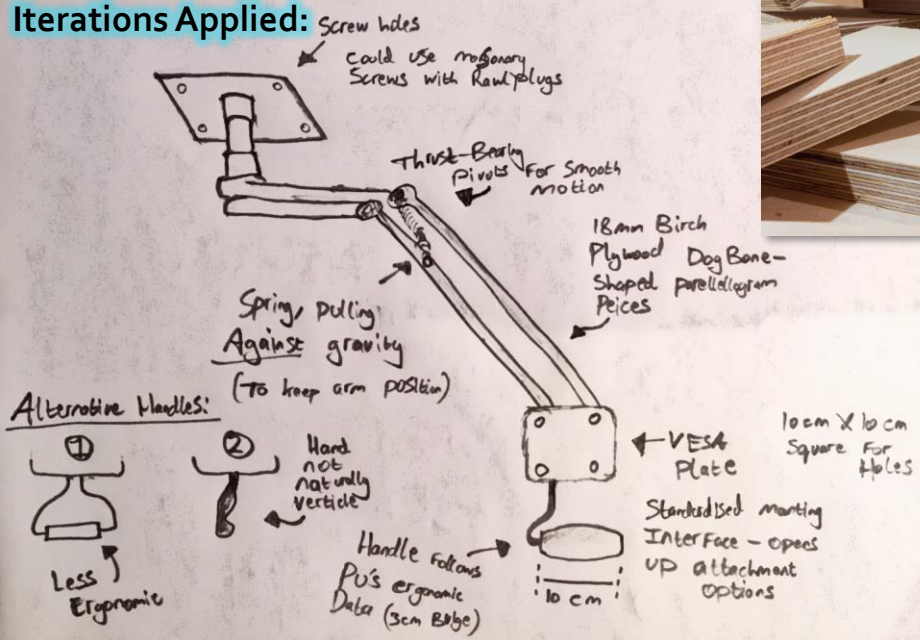 Iterations Applied:
Screw holes
Could use masonary
Screws with Rawlplugs
Thrust-Bearing
Pivots For Smooth
motion
18mm Birch
Plywood Dog Bone-
Shaped parellellogram
Peices
Spring, pulling
Against gravity
(To keep arm position)
Alternative Handles:
1
2
Hand
not
naturally
verticle
Less
Ergonomic
VESA
Plate
10cm X 10cm
Square For
Holes
Standardised mounting
Interface - opens
up attachment
options
Handle Follows
PU's ergonomic
Data (3cm Bulge)
10cm